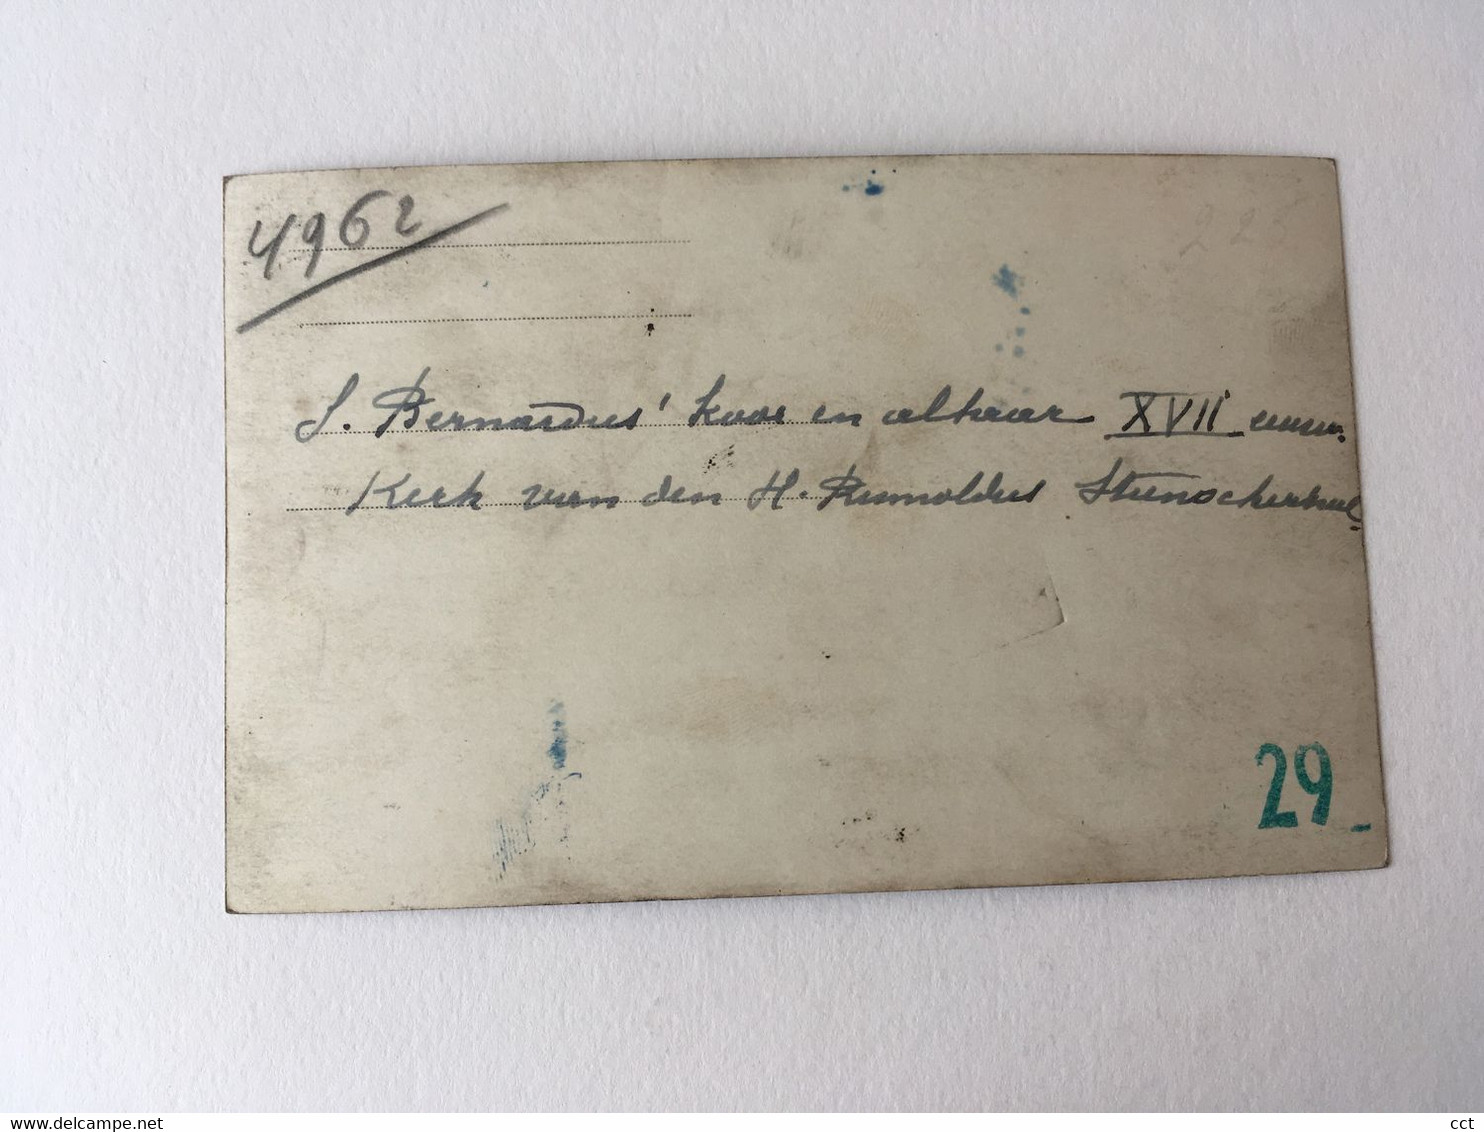 4962
225
S. Bernardus' koor en altaar XVII eeuw.
Kerk van den H. Rumoldus Steenockerzeel
29
delcampe.net
cct